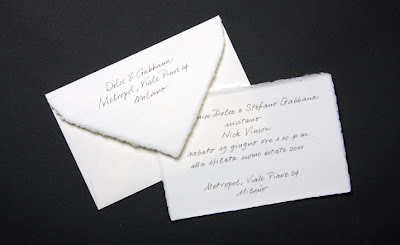 Dolce & Gabbana
Metropol, Viale Piave 24
Milano
nico Dolce e Stefano Gabbana
invitano
Nick Vinson
sabato 19 giugno ore 2 00 p.m.
alla sfilata uomo estate 2011
Metropol, Viale Piave 24
Milano